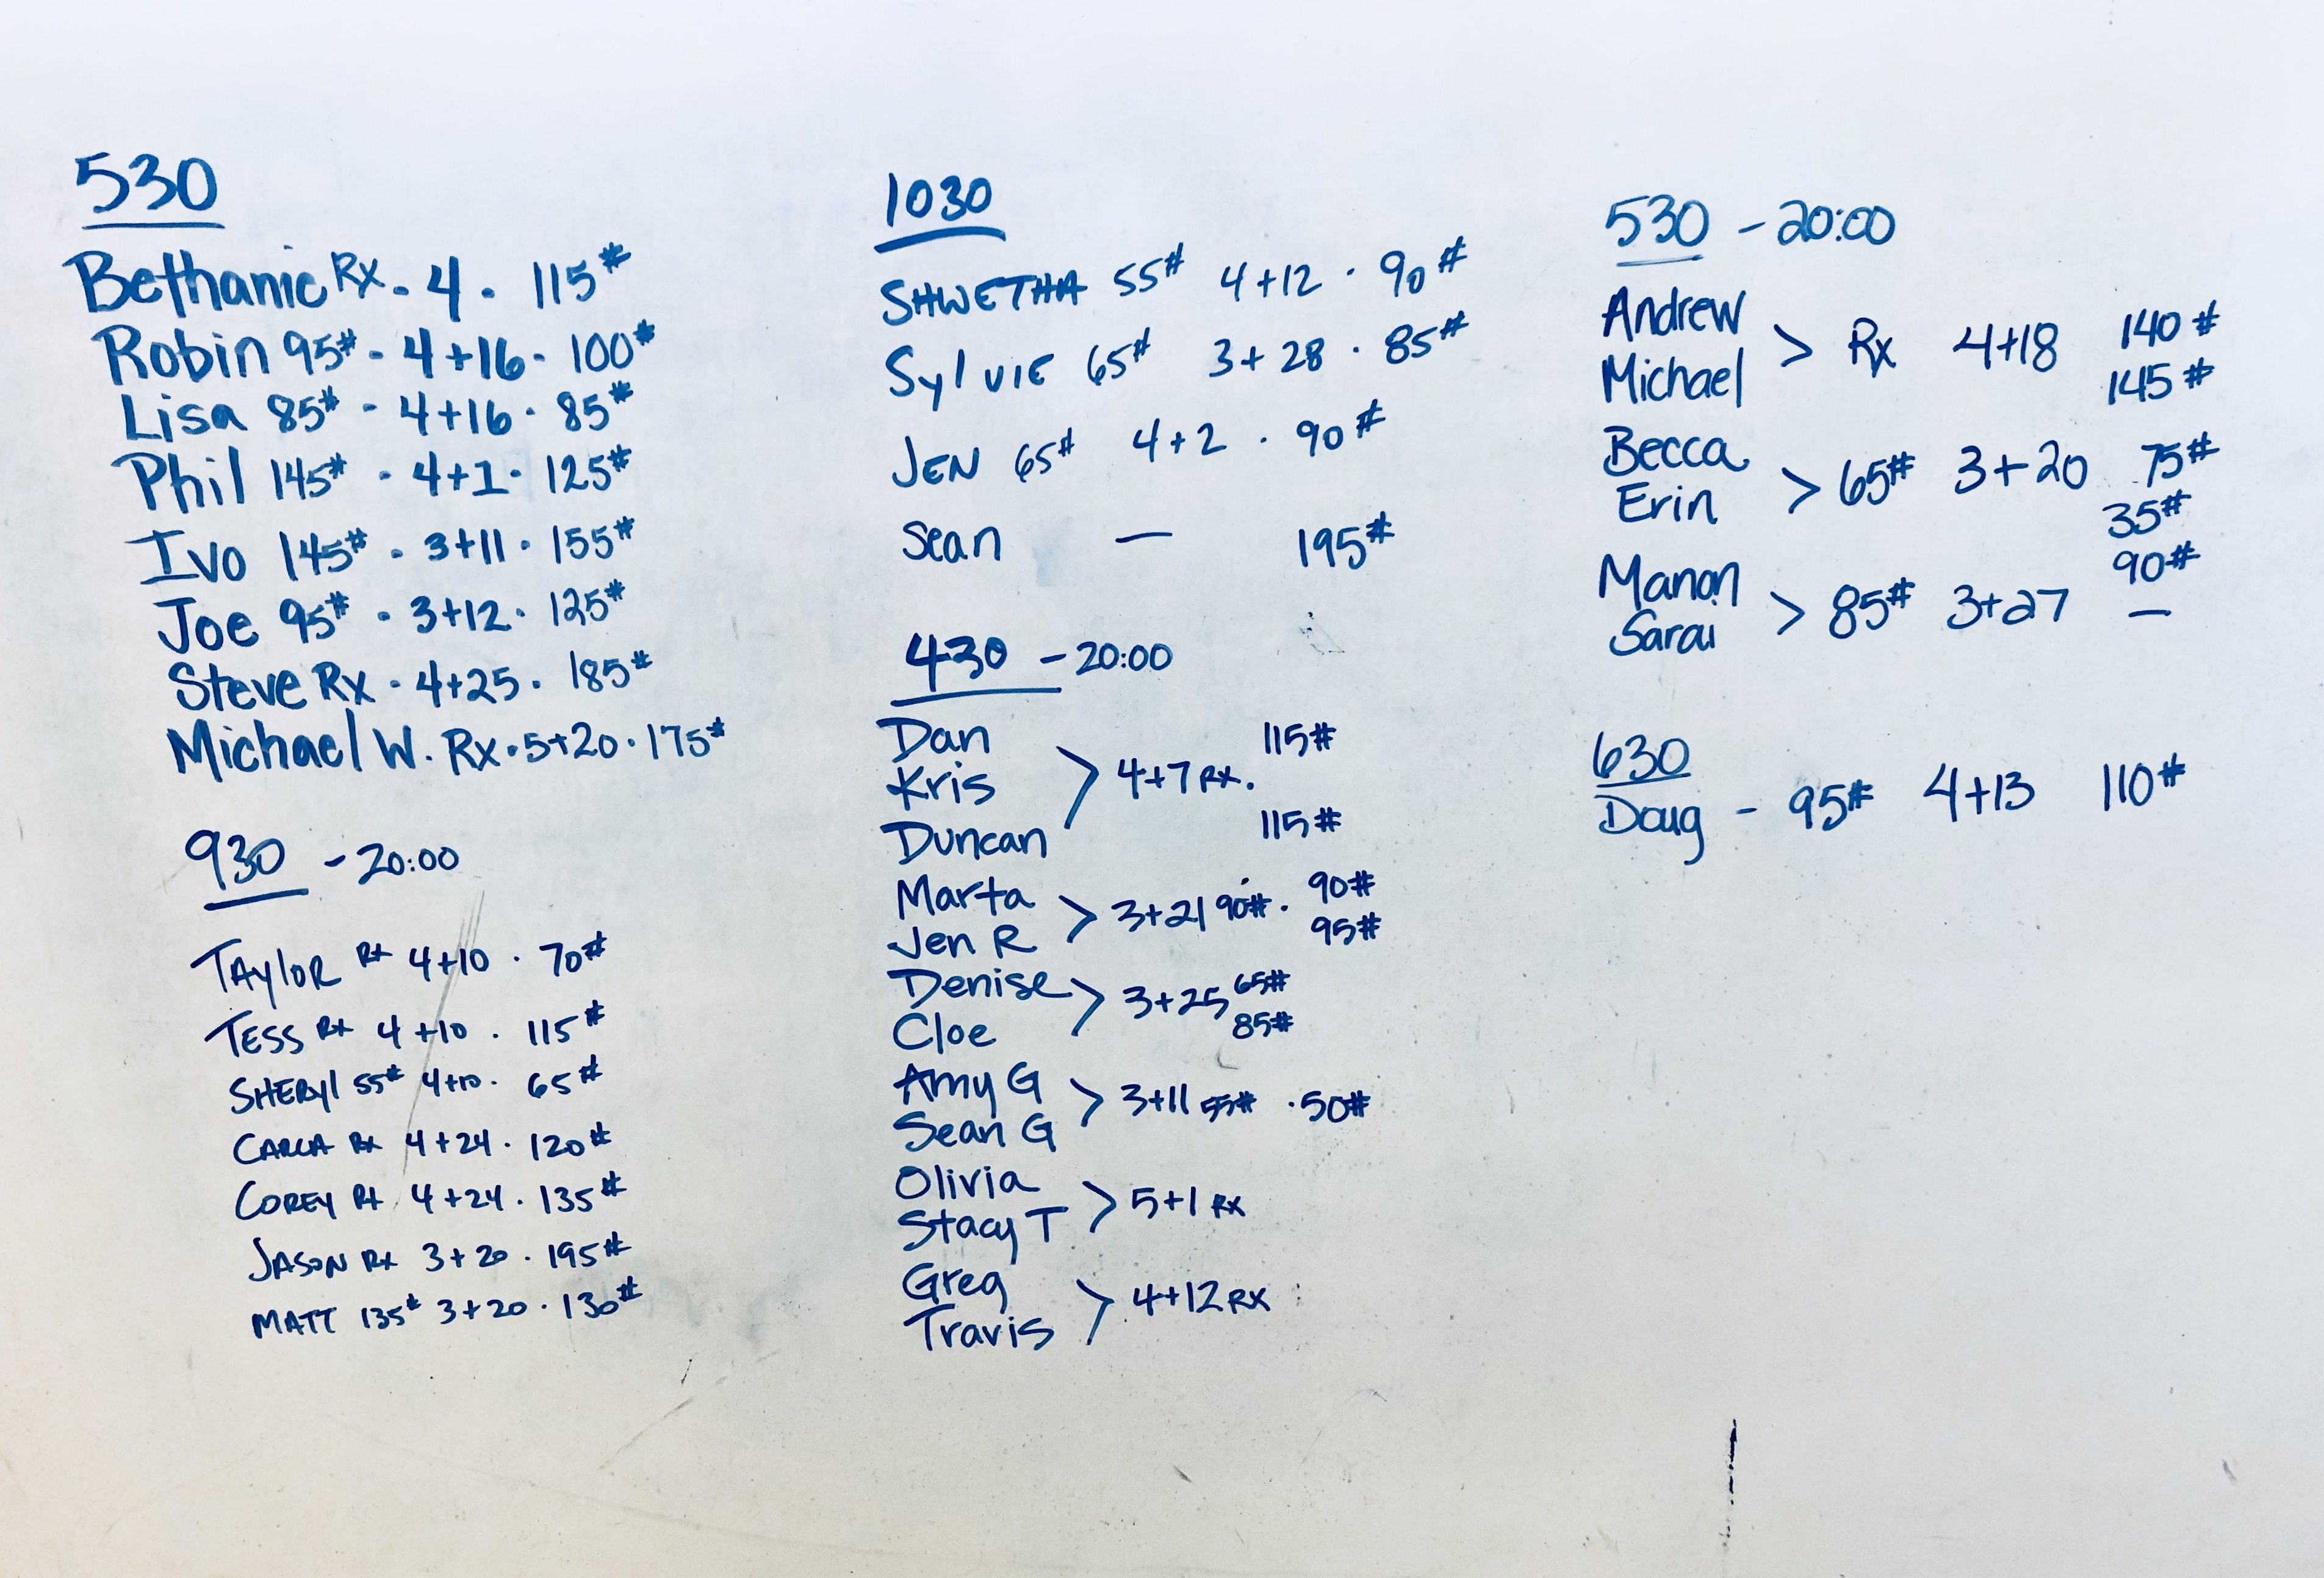 530
Bethanie Rx - 4 - 115#
Robin 95# - 4+16 - 100#
Lisa 85# - 4+16 - 85#
Phil 145# - 4+1 - 125#
Ivo 145# - 3+11 - 155#
Joe 95# - 3+12 - 125#
Steve Rx - 4+25 - 185#
Michael W. Rx - 5+20 - 175#
930 - 20:00
TAylOR Rx 4+10 · 70#
TESS Rx 4+10 · 115#
SHERyl 55# 4+10 · 65#
CARLA Rx 4+24 · 120#
COREY Rx 4+24 · 135#
JASON Rx 3+20 · 195#
MATT 135# 3+20 · 130#
1030
SHWETHA 55# 4+12 · 90#
SylviE 65# 3+28 · 85#
JEN 65# 4+2 · 90#
Sean — 195#
430 - 20:00
Dan 115#
Kris > 4+7 RX.
Duncan 115#
Marta > 3+21 90# · 90#
Jen R 95#
Denise > 3+25 65#
Cloe 85#
Amy G > 3+11 55# · 50#
Sean G
Olivia > 5+1 RX
Stacy T
Greg > 4+12 RX
Travis
530 - 20:00
Andrew > Rx 4+18 140#
Michael 145#
Becca > 65# 3+20 75#
Erin 35#
Manon > 85# 3+27 90#
Sarai —
630
Doug - 95# 4+13 110#